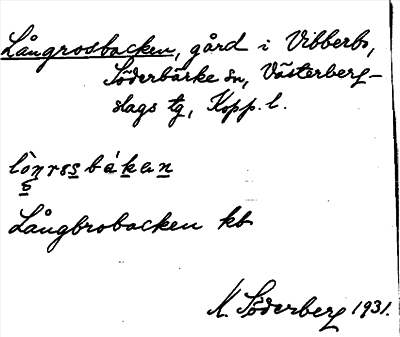 Långrosbacken, gård i Vibberbo,
Söderbärke sn, Västerberg-
slags tg, Kopp. l.
Långbrobacken kb
K Söderberg 1931.